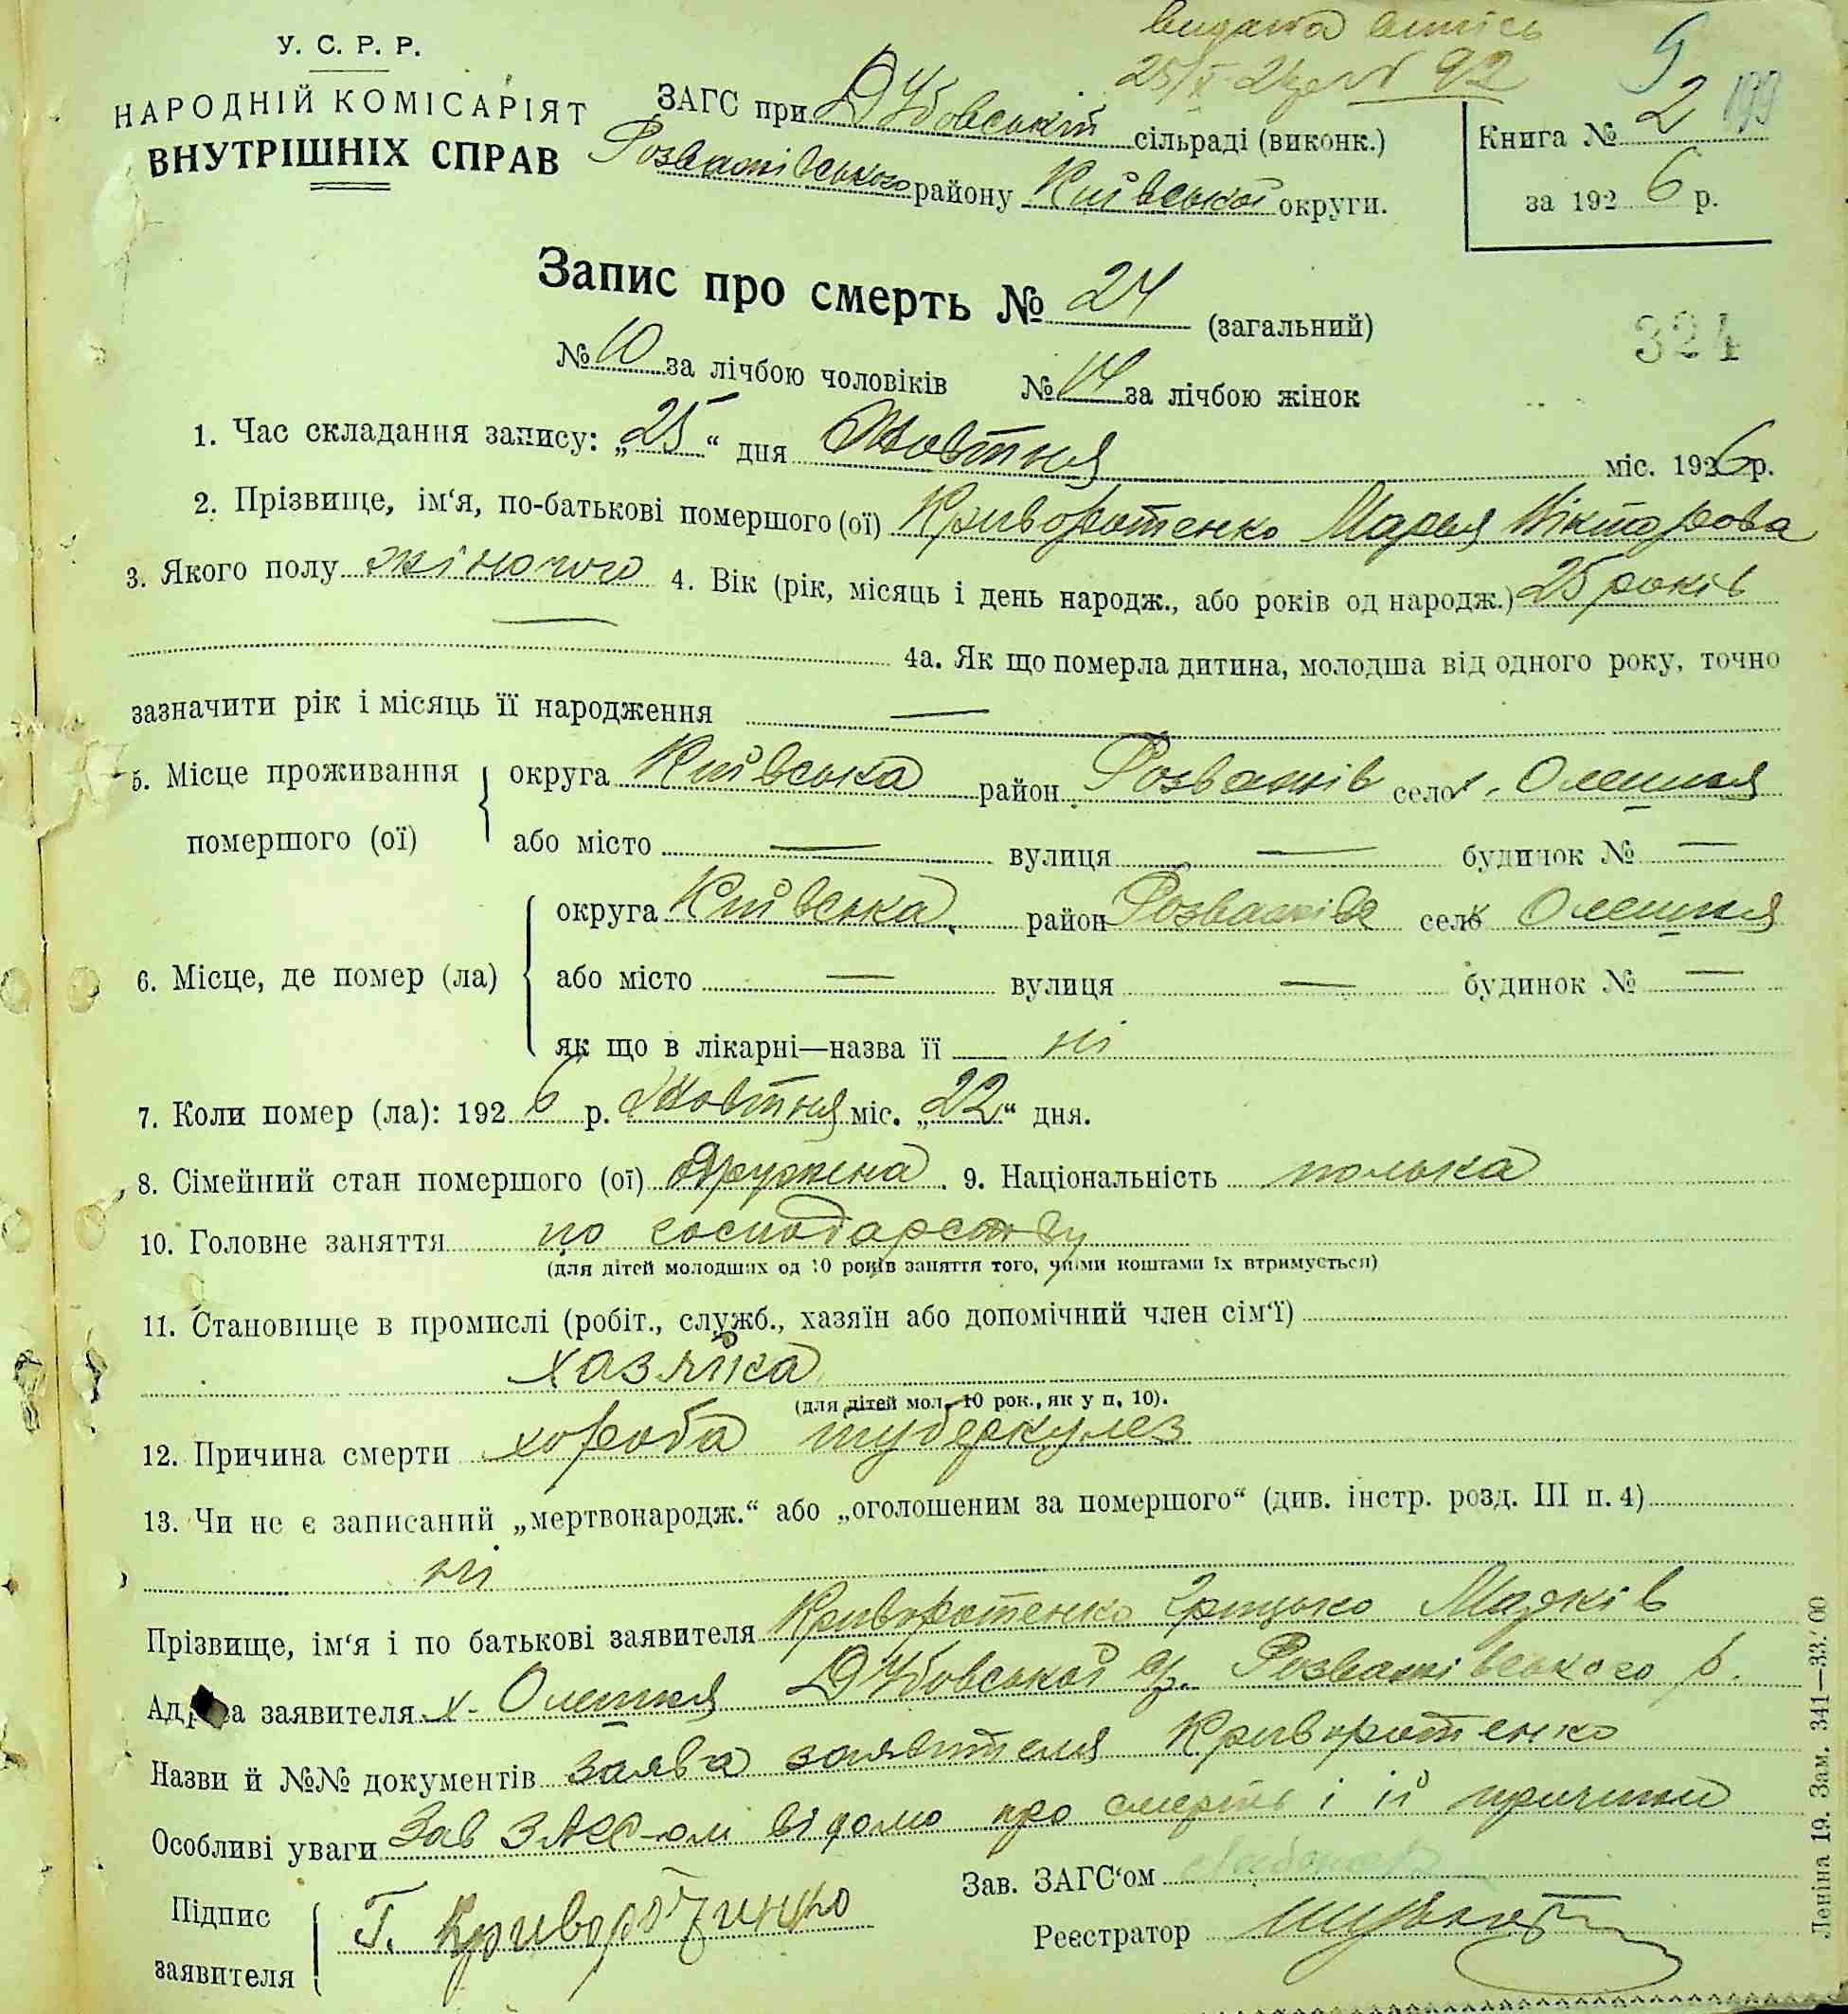 видана випись
У. С. Р. Р.
НАРОДНІЙ КОМІСАРІЯТ
ВНУТРІШНІХ СПРАВ
ЗАГС при Дубовській сільраді (виконк.)
Розважівського району Київської округи.
Книга № 2
за 1926 р.
Запис про смерть № 24 (загальний)
324
№ 10 за лічбою чоловіків № 14 за лічбою жінок
1. Час складання запису: „25“ дня Жовтня міс. 1926р.
2. Прізвище, ім‘я, по-батькові помершого (ої) Криворотенко Марья Вікторова
3. Якого полу жіночого 4. Вік (рік, місяць і день народж., або років од народж.) 25 років
4а. Як що померла дитина, молодша від одного року, точно
зазначити рік і місяць її народження —
5. Місце проживання помершого (ої) округа Київська район Розважів село х. Олешня
або місто — вулиця — будинок № —
6. Місце, де помер (ла) округа Київська район Розважів село х Олешня
або місто — вулиця — будинок № —
як що в лікарні—назва її ні
7. Коли помер (ла): 1926 р. Жовтня міс. „22“ дня.
8. Сімейний стан помершого (ої) дружена. 9. Національність полька
10. Головне заняття по господарству
(для дітей молодших од 10 років заняття того, чиїми коштами їх втримується)
11. Становище в промислі (робіт., служб., хазяїн або допомічний член сім‘ї)
хазяйка
(для дітей мол. 10 рок., як у п. 10).
12. Причина смерти хороба туберкулез
13. Чи не є записаний „мертвонародж.“ або „оголошеним за помершого“ (див. інстр. розд. III п. 4)
ні
Прізвище, ім‘я і по батькові заявителя Криворотенко Грицько Марків
Адреса заявителя х. Олешня Дубовської с/р. Розважівського р.
Назви й №№ документів заява заявителя Криворотенко
Особливі уваги Зав ЗАГС-ом відомо про смерть і її причини
Підпис заявителя Г. Криворотинко
Зав. ЗАГС‘ом
Реєстратор
Леніна 19. Зам. 341—33.00